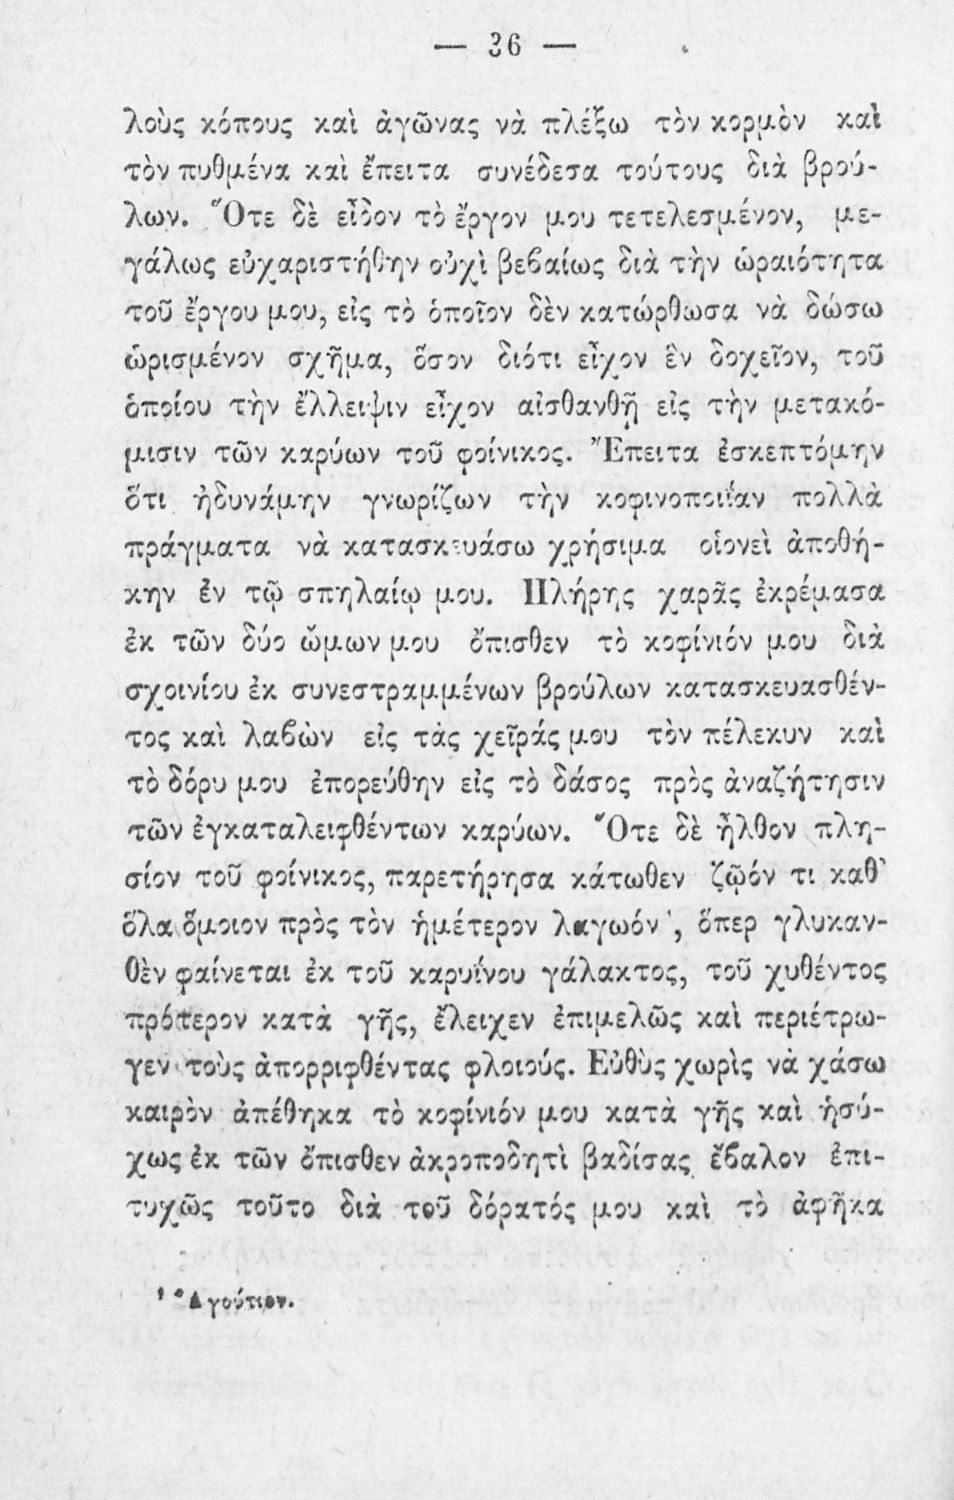 — 36 —
λοὺς κόπους καὶ ἀγῶνας νὰ πλέξω τὸν κορμὸν καὶ
τὸν πυθμένα καὶ ἔπειτα συνέδεσα τούτους διὰ βρού-
λων. Ὅτε δὲ εἶδον τὸ ἔργον μου τετελεσμένον, με-
γάλως εὐχαριστήθην οὐχὶ βεβαίως διὰ τὴν ὡραιότητα
τοῦ ἔργου μου, εἰς τὸ ὁποῖον δὲν κατώρθωσα νὰ δώσω
ὡρισμένον σχῆμα, ὅσον διότι εἶχον ἓν δοχεῖον, τοῦ
ὁποίου τὴν ἔλλειψιν εἶχον αἰσθανθῆ εἰς τὴν μετακό-
μισιν τῶν καρύων τοῦ φοίνικος. Ἔπειτα ἐσκεπτόμην
ὅτι ἠδυνάμην γνωρίζων τὴν κοφινοποιΐαν πολλὰ
πράγματα νὰ κατασκευάσω χρήσιμα οἱονεὶ ἀποθή-
κην ἐν τῷ σπηλαίῳ μου. Πλήρης χαρᾶς ἐκρέμασα
ἐκ τῶν δύο ὤμων μου ὄπισθεν τὸ κοφίνιόν μου διὰ
σχοινίου ἐκ συνεστραμμένων βρούλων κατασκευασθέν-
τος καὶ λαβὼν εἰς τὰς χεῖράς μου τὸν πέλεκυν καὶ
τὸ δόρυ μου ἐπορεύθην εἰς τὸ δάσος πρὸς ἀναζήτησιν
τῶν ἐγκαταλειφθέντων καρύων. Ὅτε δὲ ἦλθον πλη-
σίον τοῦ φοίνικος, παρετήρησα κάτωθεν ζῷόν τι καθ’
ὅλα ὅμοιον πρὸς τὸν ἡμέτερον λαγωόν ¹, ὅπερ γλυκαν-
θὲν φαίνεται ἐκ τοῦ καρυΐνου γάλακτος, τοῦ χυθέντος
πρότερον κατὰ γῆς, ἔλειχεν ἐπιμελῶς καὶ περιέτρω-
γεν τοὺς ἀπορριφθέντας φλοιούς. Εὐθὺς χωρὶς νὰ χάσω
καιρὸν ἀπέθηκα τὸ κοφίνιόν μου κατὰ γῆς καὶ ἡσύ-
χως ἐκ τῶν ὄπισθεν ἀκροποδητὶ βαδίσας ἔβαλον ἐπι-
τυχῶς τοῦτο διὰ τοῦ δόρατός μου καὶ τὸ ἀφῆκα
¹ Ἀγούτιον.